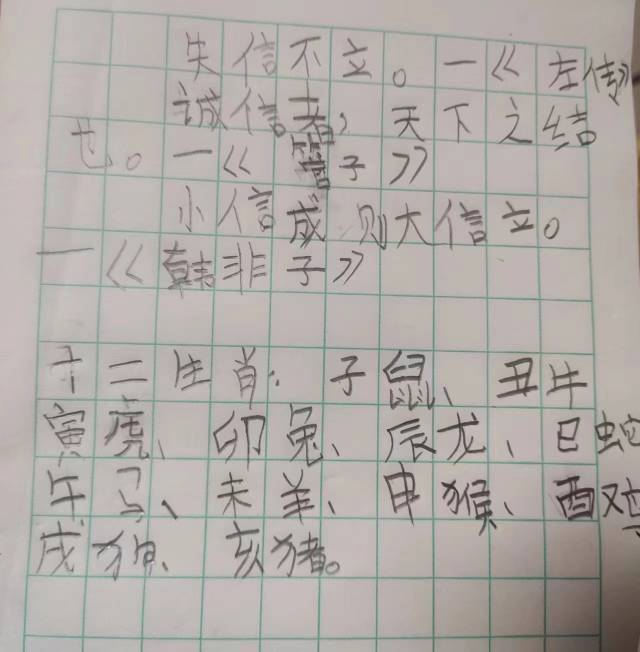 失信不立。一《左传》
诚信者，天下之结
也。一《管子》
小信成则大信立。
一《韩非子》
十二生肖：子鼠、丑牛
寅虎、卯兔、辰龙、巳蛇
午马、未羊、申猴、酉鸡
戌狗、亥猪。